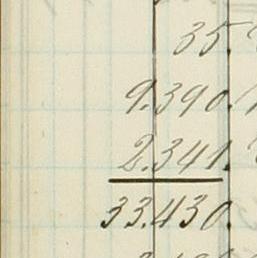 35.
9.390.
2.341.
33.430.